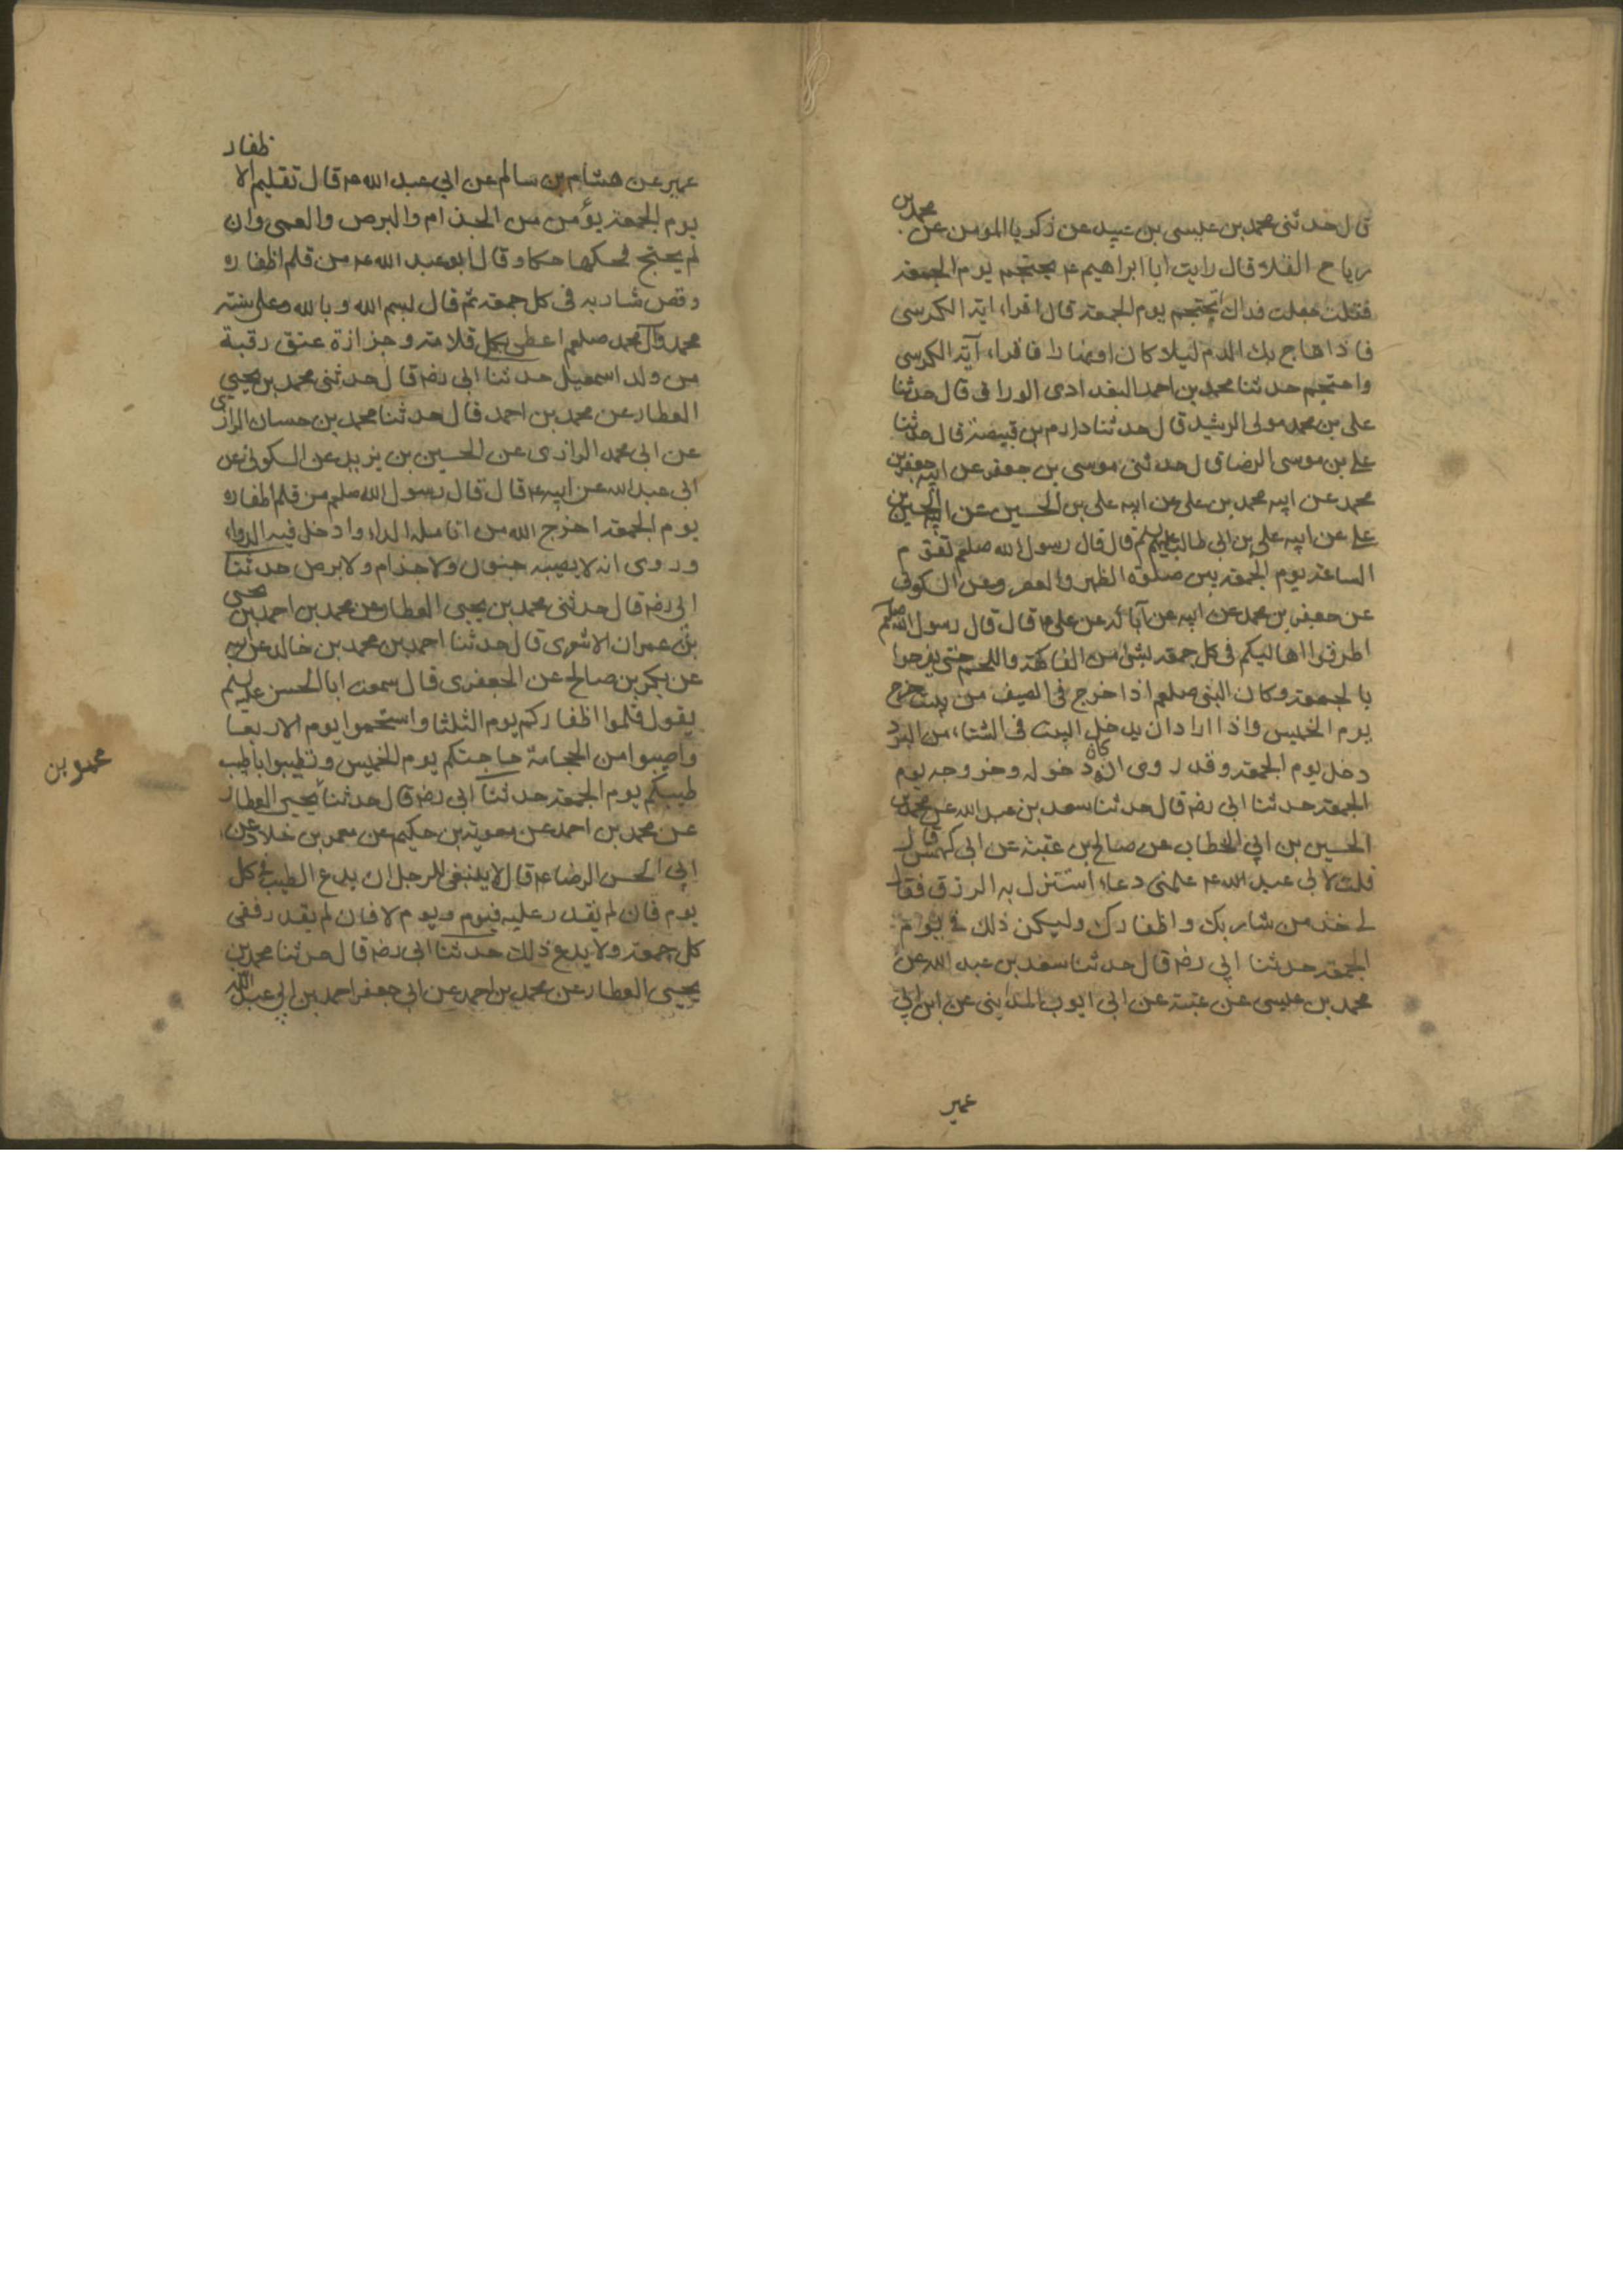 قال حدثنى محمد بن عيسى بن عبيد عن زكريا المومن عن محمد بن
رياح القلا قال رايت ابا ابراهيم ع يحتجم يوم الجمعة
فقلت جعلت فداك تحتجم يوم الجمعة قال اقراء اية الكرسى
فاذا هاج بك الدم ليلا كان او نهارا فاقراء آية الكرسى
واحتجم حدثنا محمد بن احمد البغدادى الوراق قال حدثنا
على بن محمد مولى الرشيد قال حدثنا دارم بن قبيصة قال حدثنا
على بن موسى الرضا قال حدثنى موسى بن جعفر عن ابيه جعفر بن
محمد عن ابيه محمد بن على عن ابيه على بن الحسين عن ابيه الحسين بن
على عن ابيه على بن ابى طالب عليهم قال قال رسول الله صلعم تقوم
الساعة يوم الجمعة بين صلوة الظهر والعصر وعن السكونى
عن جعفر بن محمد عن ابيه عن آبائه عن على ع قال قال رسول الله صلعم
اطرقوا اهاليكم فى كل جمعة بشئ من الفاكهة واللحم حتى يفرحوا
بالجمعة وكان النبى صلعم اذا خرج فى الصيف من بيت خرج
يوم الخميس واذا اراد ان يدخل البيت فى الشتاء من البرد
دخل يوم الجمعة وقد روى انه كان دخوله وخروجه يوم
الجمعة حدثنا ابى رضه قال حدثنا سعد بن عبد الله عن محمد بن
الحسين بن ابي الخطاب عن صالح بن عقبة عن ابى كهمس قال
قلت لابى عبد الله ع علمنى دعاء استنزل به الرزق فقال
لى خذ من شاربك واظفارك وليكن ذلك فى يوم
الجمعة حدثنا ابى رضه قال حدثنا سعد بن عبد الله عن
محمد بن عيسى عن عتبة عن ابى ايوب المدينى عن ابن ابى
عمير
ظفار
عمير عن هشام بن سالم عن ابي عبد الله ع قال تقليم الا
يوم الجمعة يؤمن من الجذام والبرص والعمى وان
لم يحتج فحكها حكا وقال ابو عبد الله ع من قلم اظفاره
وقص شاربه فى كل جمعة ثم قال بسم الله وبالله وعلى سنة
محمد وآل محمد صلعم اعطى بكل قلامة وجزازة عتق رقبة
من ولد اسمعيل حدثنا ابى رضه قال حدثنى محمد بن يحيى
العطار عن محمد بن احمد قال حدثنا محمد بن حسان الرازى
عن ابى محمد الرازى عن الحسين بن يزيد عن السكونى عن
ابى عبد الله عن ابيه ع قال قال رسول الله صلعم من قلم اظفاره
يوم الجمعة اخرج الله من انامله الداء وادخل فيه الدواء
وروى انه لا يصيبه جنون ولا جذام ولا برص حدثنا
ابى رضه قال حدثنى محمد بن يحيى العطار عن محمد بن احمد بن يحيى
بن عمران الاشعرى قال حدثنا احمد بن محمد بن خالد عن ابيه
عن بكر بن صالح عن الجعفرى قال سمعت ابا الحسن عليه
يقول قلموا اظفاركم يوم الثلثا واستحموا يوم الاربعا
واصيبوا من الحجامة حاجتكم يوم الخميس وتطيبوا باطيب
طيبكم يوم الجمعة حدثنا ابى رضه قال حدثنا يحيى العطار
محمد بن
عن محمد بن احمد عن معوية بن حكيم عن معمر بن خلاد عن
ابى الحسن الرضا ع قال لا ينبغى للرجل ان يدع الطيب فى كل
يوم فان لم يقدر عليه فيوم ويوم لا فان لم يقدر ففى
كل جمعة ولا يدع ذلك حدثنا ابى رضه قال حدثنا محمد بن
يحيى العطار عن محمد بن احمد عن ابى جعفر احمد بن ابى عبد الله